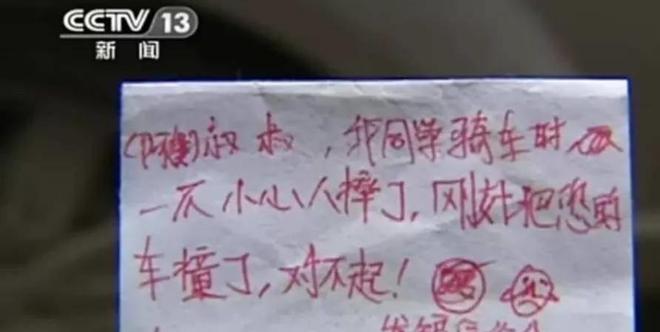 CCTV 13
新闻
叔叔，我同学骑车时
一不小心人摔了，刚好把您的
车撞了，对不起！